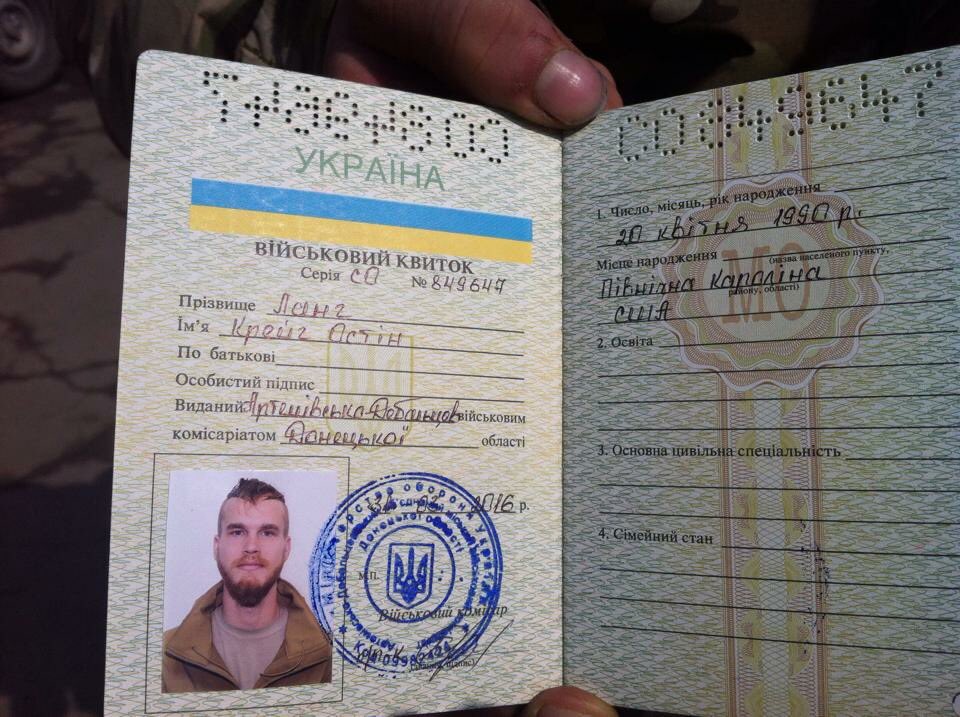 УКРАЇНА
ВІЙСЬКОВИЙ КВИТОК
Серія СО № 849647
Прізвище Ланг
Ім'я Крейг Остін
По батькові
Особистий підпис
Виданий Артемівсько-Дебальцев військовим
комісаріатом Донецької області
31 03 2016 р.
м.п.
Військовий комісар
(підпис)
СО 849647
1. Число, місяць, рік народження
20 квітня 1990 р.
Місце народження (назва населеного пункту,
Північна Кароліна
району, області)
США
МО
2. Освіта
3. Основна цивільна спеціальність
4. Сімейний стан